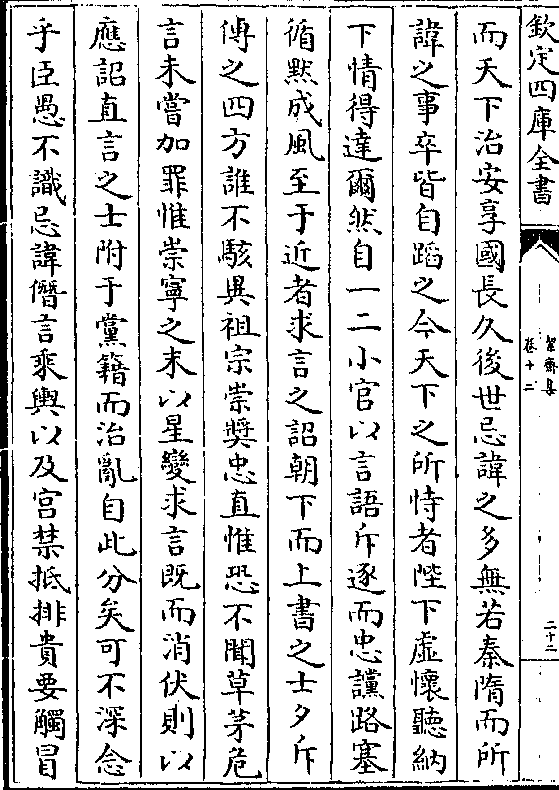 欽定四庫全書
絜齋集
卷十二
二十二
而天下治安享國長久後世忌諱之多無若秦隋而所
諱之事卒皆自蹈之今天下之所恃者陛下虛懷聽納
下情得達爾然自一二小官以言語斥逐而忠讜路塞
循黙成風至于近者求言之詔朝下而上書之士夕斥
傳之四方誰不駭異祖宗崇奬忠直惟恐不聞草茅危
言未嘗加罪惟崇寧之末以星變求言既而消伏則以
應詔直言之士附于黨籍而治亂自此分矣可不深念
乎臣愚不識忌諱僭言乘輿以及宫禁抵排貴要觸冒